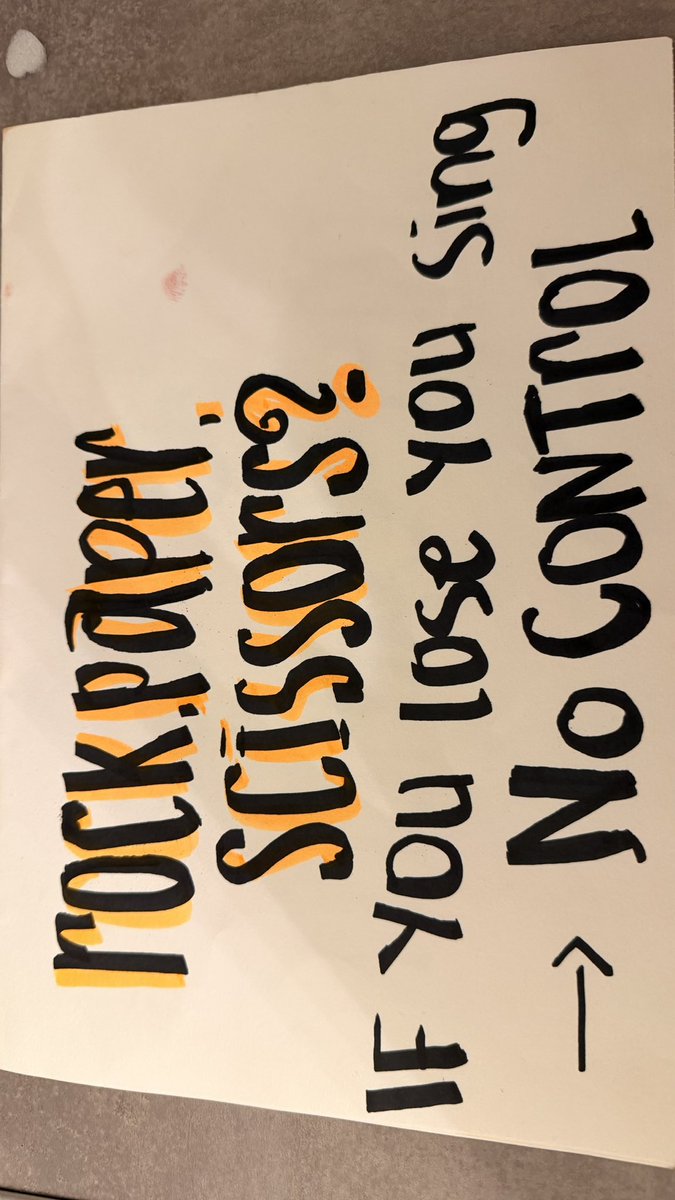 rock.paper.
scissors?
IF you lose you sing
→ No CONTrOL